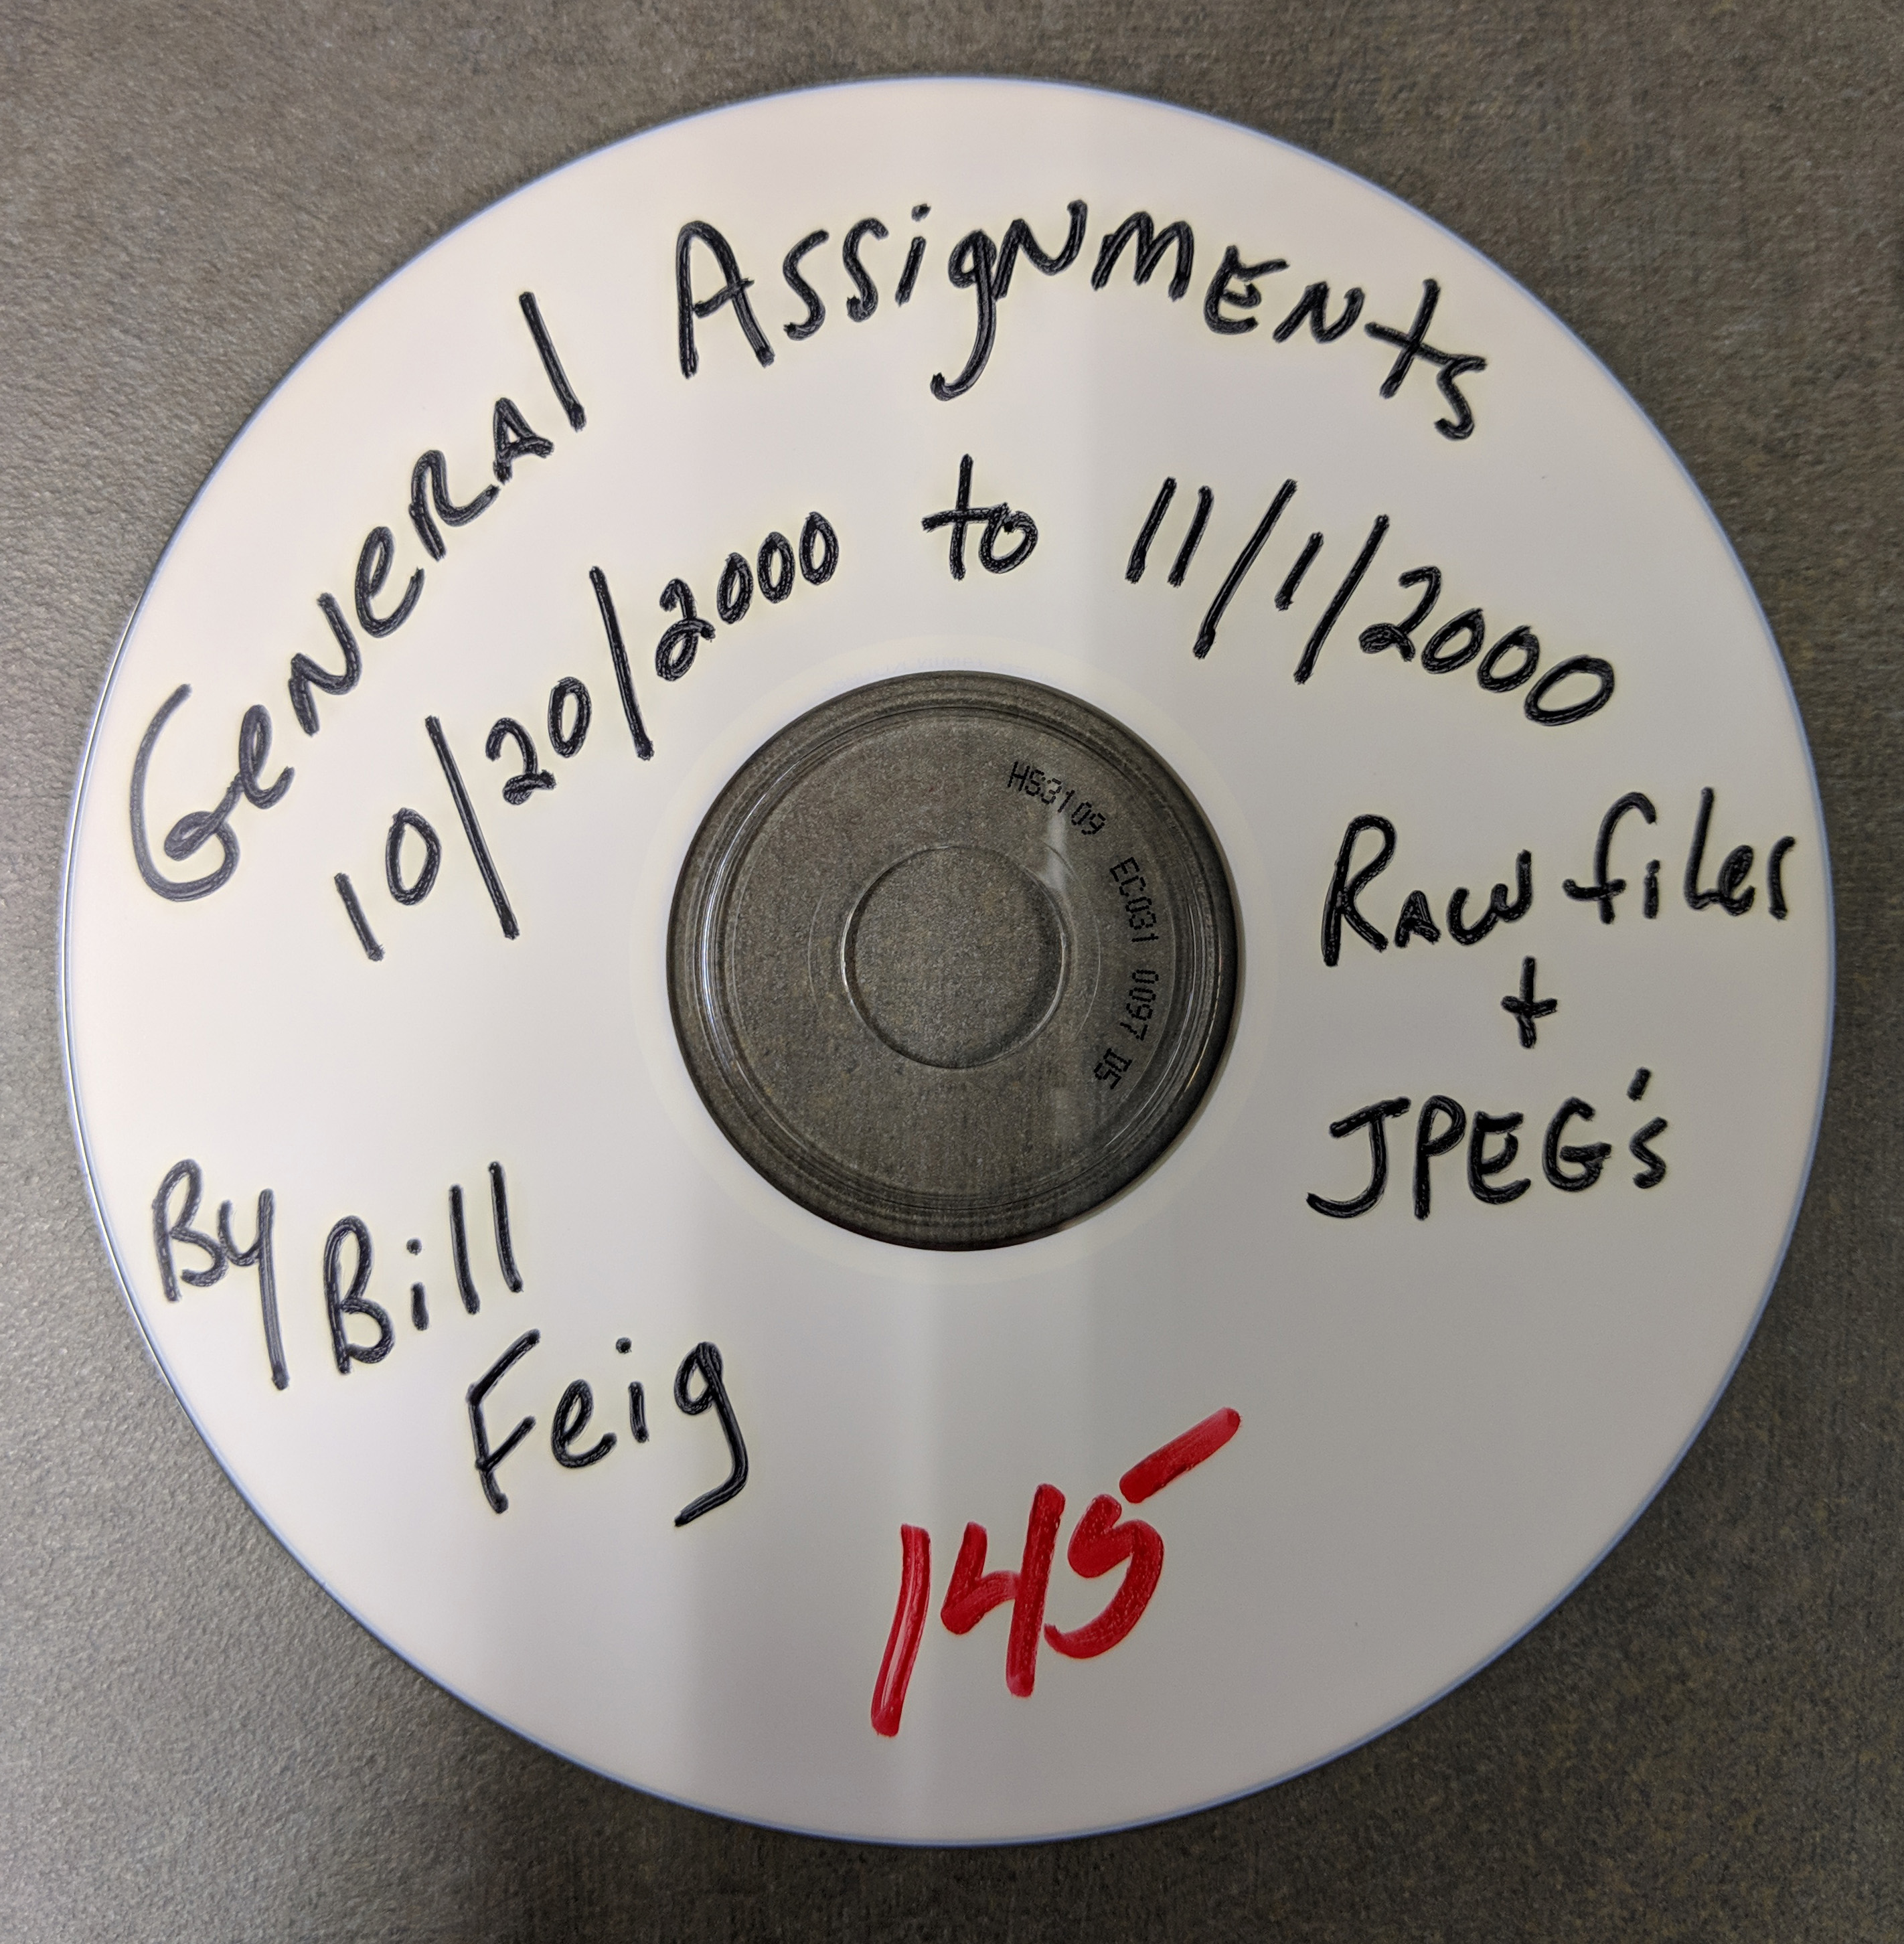 General Assignments
10/20/2000 to 11/1/2000
HS3109 EC031 0097 D5
Raw files
+
JPEG's
By Bill
Feig
145